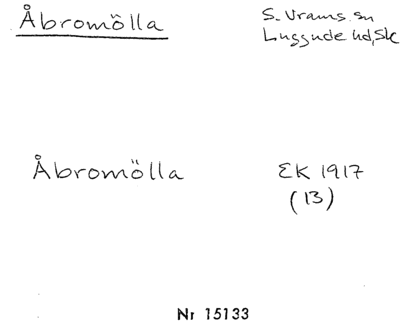 Åbromölla
S. Vrams sn
Luggude hd, Sk
Åbromölla
EK 1917
(13)
Nr 15133